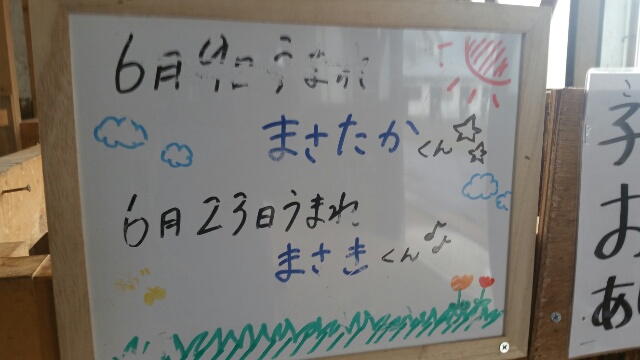 6月 うまれ
まさたか くん
6月23日うまれ
まさき くん
子
お